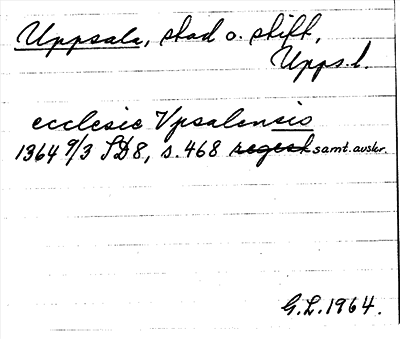 Uppsala, stad o. stift,
Upps. l.
ecclesie Vpsalensis
1364 9/3 SD8, s. 468 regest samt. avskr.
G.L. 1964.